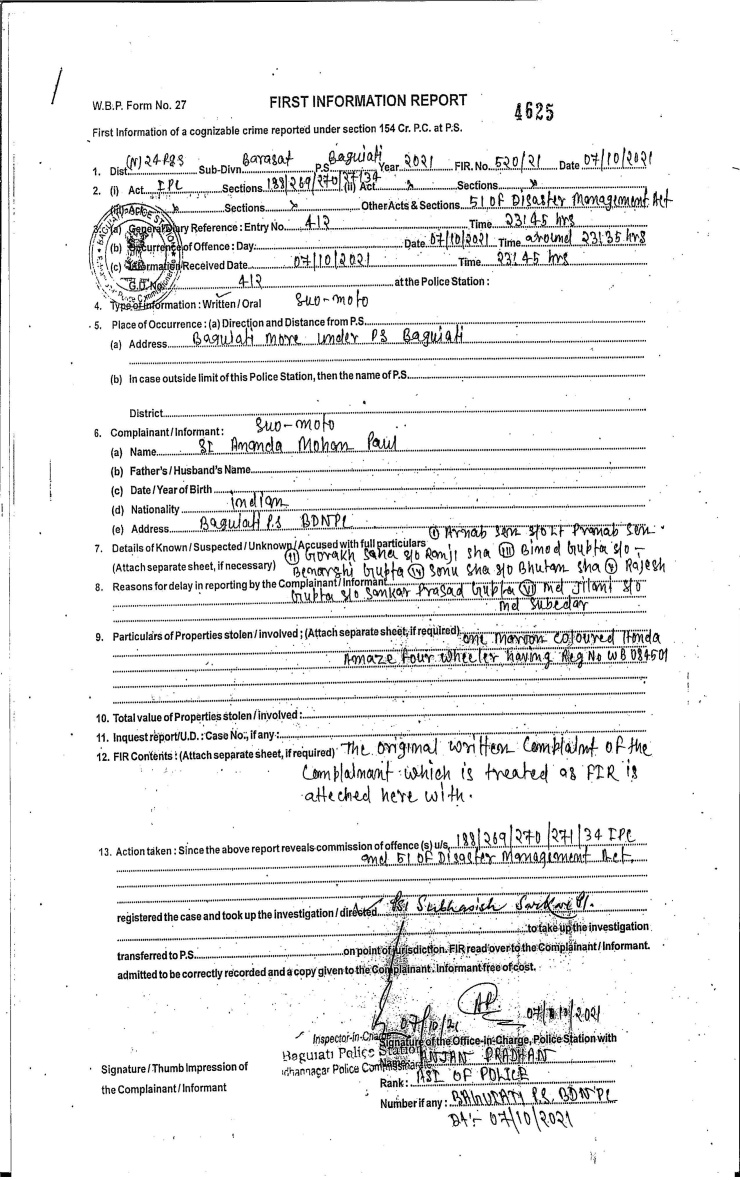 W.B.P. Form No. 27 FIRST INFORMATION REPORT 4625
First Information of a cognizable crime reported under section 154 Cr. P.C. at P.S.
1. Dist (N) 24 PGS Sub-Divn. Barasat P.S. Baguiati Year 2021 FIR. No. 520/21 Date 07/10/2021
2. (i) Act IPC Sections 188/269/270/271/34 (ii) Act Sections
(iii) Act Sections Other Acts & Sections 51 OF Disaster Management Act
3. (a) General Diary Reference : Entry No. 412 Time 23:45 hrs
(b) Occurrence of Offence : Day: Date 07/10/2021 Time around 23:35 hrs
(c) Information Received Date 07/10/2021 Time 23:45 hrs
G.D. No. 412 at the Police Station :
4. Type of Information : Written / Oral Suo-moto
5. Place of Occurrence : (a) Direction and Distance from P.S.
(a) Address Baguiati more under PS Baguiati
(b) In case outside limit of this Police Station, then the name of P.S.
District
6. Complainant / Informant : Suo-moto
(a) Name SI Ananda Mohan Paul
(b) Father's / Husband's Name
(c) Date / Year of Birth
(d) Nationality indian
(e) Address Baguiati P.S BDNPC
7. Details of Known / Suspected / Unknown / Accused with full particulars (i) Arnab Sen S/o Lt Pranab Sen
(Attach separate sheet, if necessary) (ii) Gorakh Saha s/o Ranji sha (iii) Binod Gupta s/o -
Benarshi Gupta (iv) Sonu sha s/o Bhutan sha (v) Rajesh
8. Reasons for delay in reporting by the Complainant / Informant
Gupta s/o Sankar Prasad Gupta (vi) md Jilani s/o
md Subedar
9. Particulars of Properties stolen / involved ; (Attach separate sheet, if required) one Maroon coloured Honda
Amaze four wheeler having Reg No WB 084501
10. Total value of Properties stolen / involved :
11. Inquest report/U.D. : Case No., if any :
12. FIR Contents : (Attach separate sheet, if required) The original written complaint of the
Complainant which is treated as FIR is
atteched here with.
13. Action taken : Since the above report reveals commission of offence (s) u/s. 188/269/270/271/34 IPC
and 51 OF Disaster Management Act.
registered the case and took up the investigation / directed Subhasish Sarkar
to take up the investigation
transferred to P.S. on point of jurisdiction. FIR read over to the Complainant / Informant.
admitted to be correctly recorded and a copy given to the Complainant. Informant free of cost.
AP. 07/10/2021
07/10/21
Inspector-in-Charge Signature of the Office-in-Charge, Police Station with
Baguiati Police Station Name ANJAN PRADHAN
Bidhannagar Police Commissionarate
Signature / Thumb Impression of Rank : ASI OF POLICE
the Complainant / Informant Number if any : BAGUIATI P.S. BDNPC
DA:- 07/10/2021